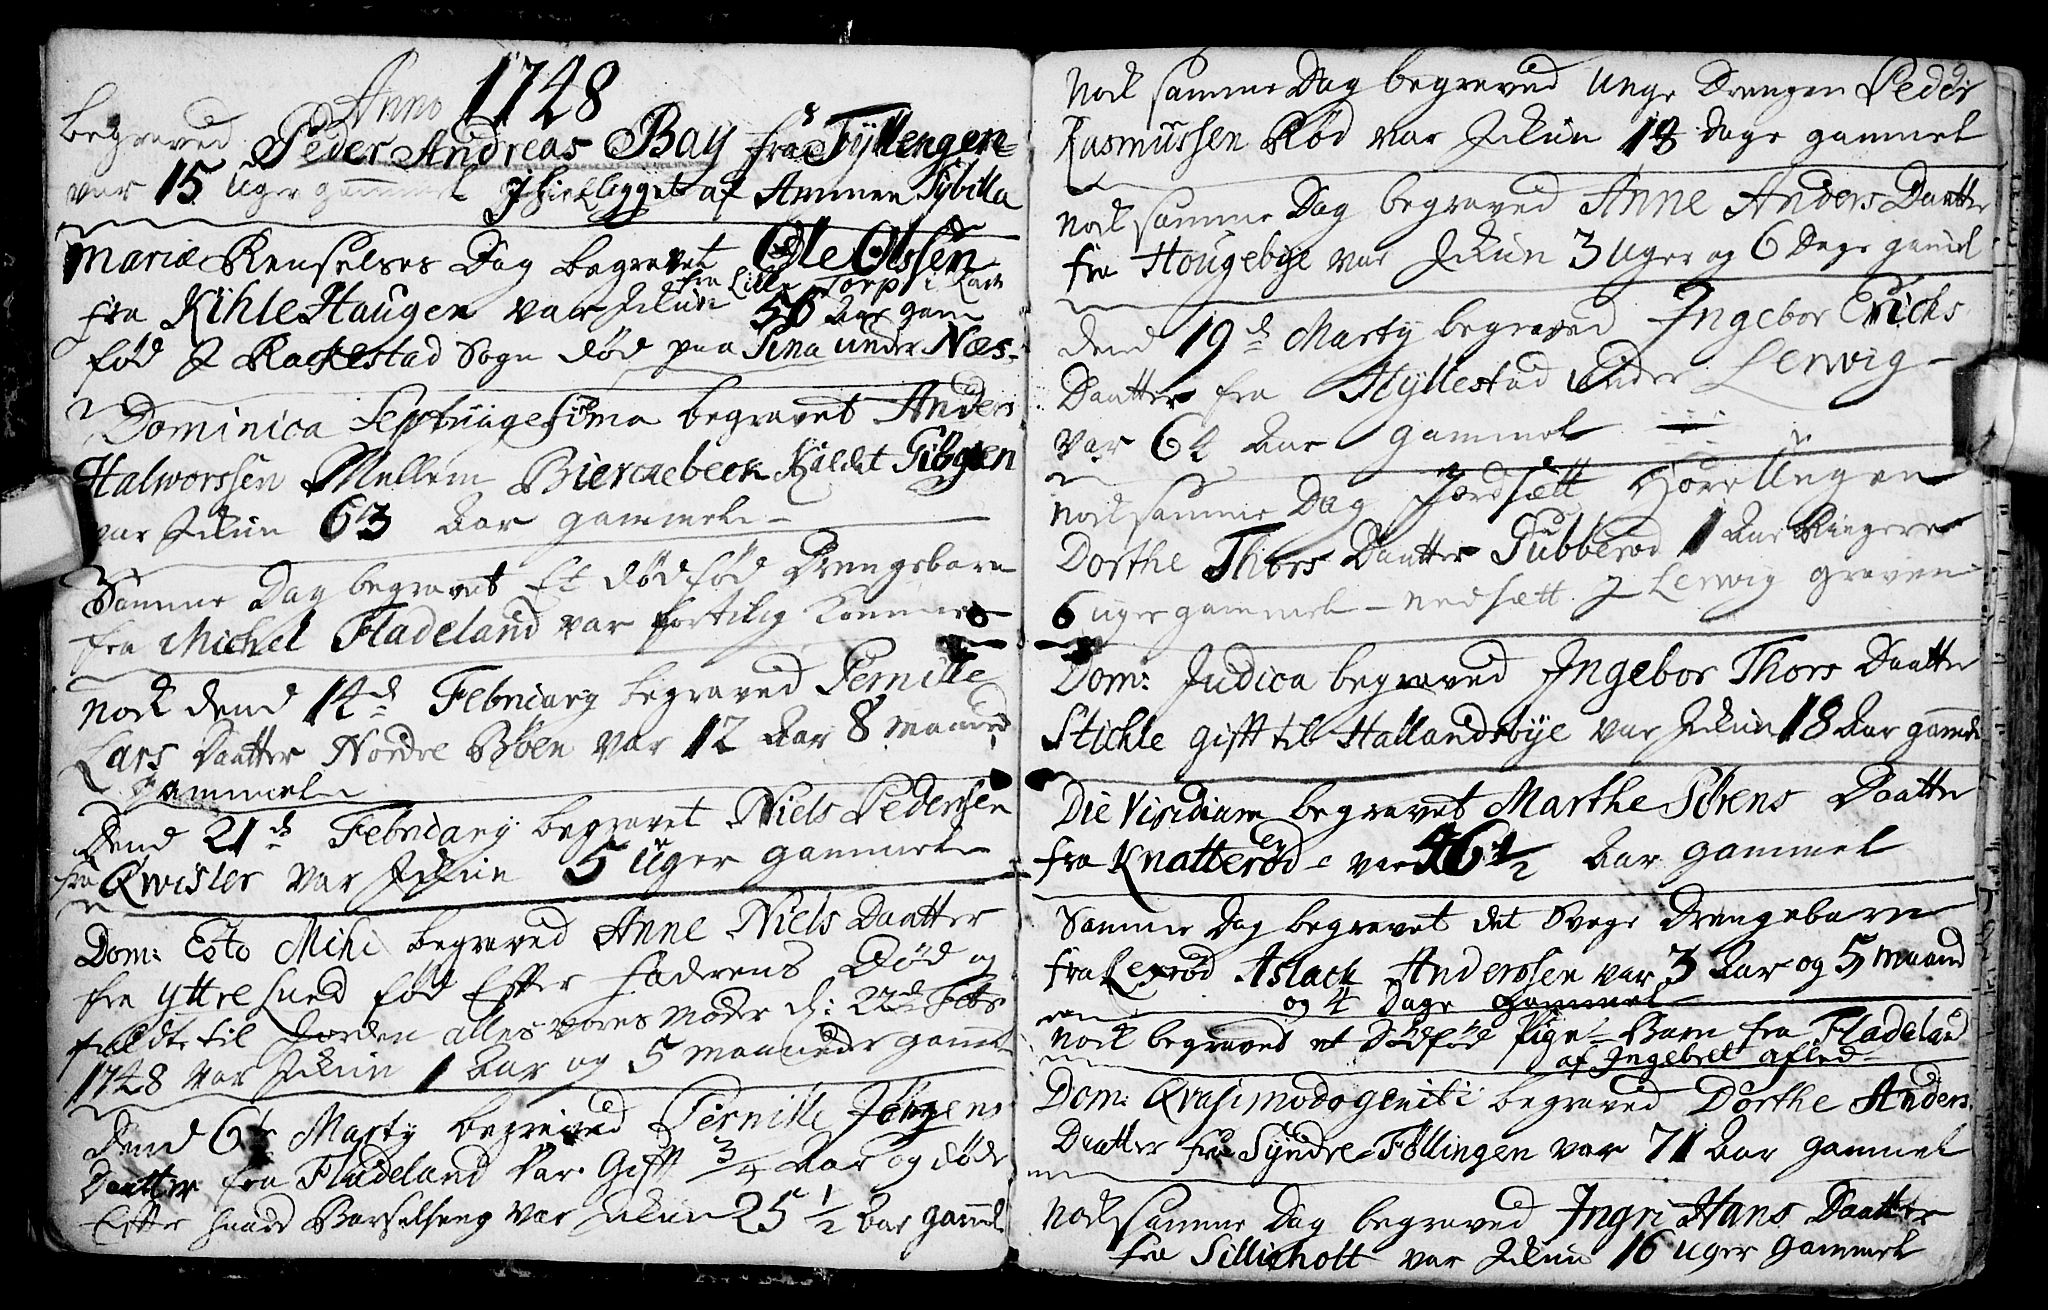 Anno 1748
begraved Peder Andreas Bay fra Fÿllengen
var 15 Uger gammel af Ammen Sybilla
Mariæ Renselses Dag begravet Ole Olssen
fra Lille Torp i
fra Kihle Haugen var 56 Aar gam
fød J Rackestad Sogn død paa under Næs
Dominica Septuagesima begravet Anders
Halworssen Mellem Bierckebeck Kaldet
var 63 Aar gammel
Samme Dag begravet Et dødfød Drengebarn
fra Michel Fladeland var fortilig kommen
Nock dend 14d February begraved Pernille
Lars Daatter Nordre Bøen var 12 Aar 8 Maaned
gammel
Dend 21d February begravet Niels Pedersen
fra Qvisler var 5 Uger gammel
Dom: Esto Mihi begraved Anne Niels Daatter
fra Yttresund fød Efter Faderens Død og
til Jorden alles vores Moder d: 22d Febr
1748 var 1 Aar og 5 Maaneder gamel
Dend 6te Marty begraved Pernille Jörgens
Daatter fra Fladeland var Gift 3/4 Aar og døde
Efter Barselseng var 25 1/2 Aar gamel
9
Nock samme Dag begraved unge Drengen Peder
Rasmussen Rød var dage gammel
Nock samme Dag begraved Anne Anders Daatter
fra Hougebye var 3 Uger og 6 Dage gamel
Dend 19d Marty begraved Ingebor Erichs
Daatter fra Hyllestad under Lerwig
var Aar gammel
Nock samme Dag Jordsætt Hore Ungen
Dorthe Thors Daatter Tubberød 1 Aar Ringere
6 uger gammel nedsætt J Lerwig graven
Dom: Judica begraved Ingebor Thors Daatter
Stichle gifft til Hallandsbÿe var 18 Aar gammel
Die Viridium begravet Marthe Sörens Daatter
fra Knatterød var 1/2 Aar gammel
Samme Dag begravet det Svage Drengebarn
fra Lexrød Aslack Anderssen var 3 Aar og 5 Maaned
og 4 Dage gammel
Nock begraved et Dødfød Pige Barn fra Fladeland
af Ingebret afled
Dom: Qvasimodogeniti begraved Dorthe Anders
Daatter fra Syndre Föllingen var 71 Aar gammel
Nock samme Dag begraved Ingri Hans Daatter
fra Sillieholt var 16 Uger gammel